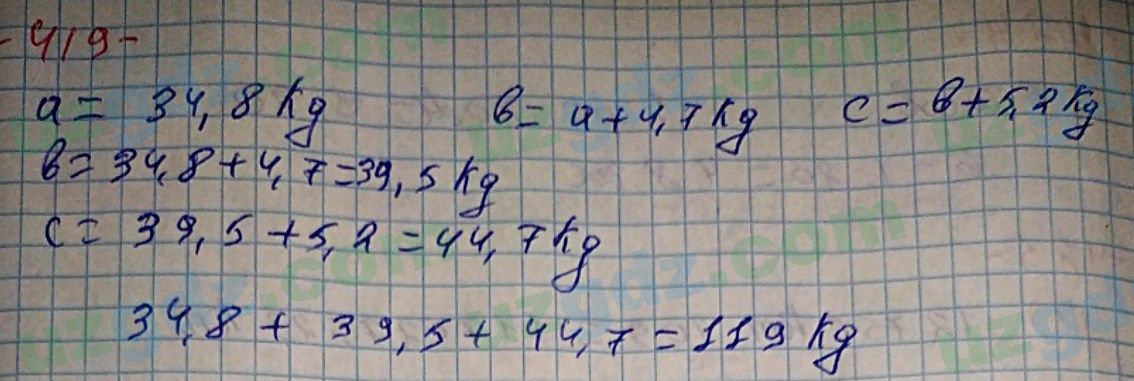 -419-
a = 34,8 kg b = a + 4,7 kg c = b + 5,2 kg
b = 34,8 + 4,7 = 39,5 kg
c = 39,5 + 5,2 = 44,7 kg
34,8 + 39,5 + 44,7 = 119 kg
uzgdz.com